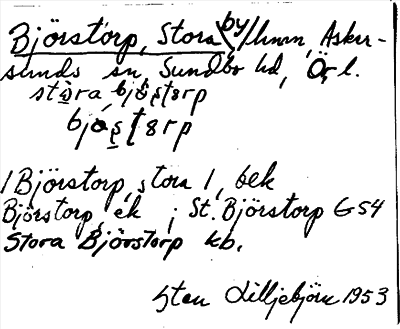 Björstorp, Stora by/hmn, Asker-
sunds sn, Sundbo hd, Ör l.
stora bjöstorp
bjöstorp
/Björstorp, stora /, bek
Björstorp, ek ; St. Björstorp G54
Stora Björstorp kb.
Sten Lilljebjörn 1953